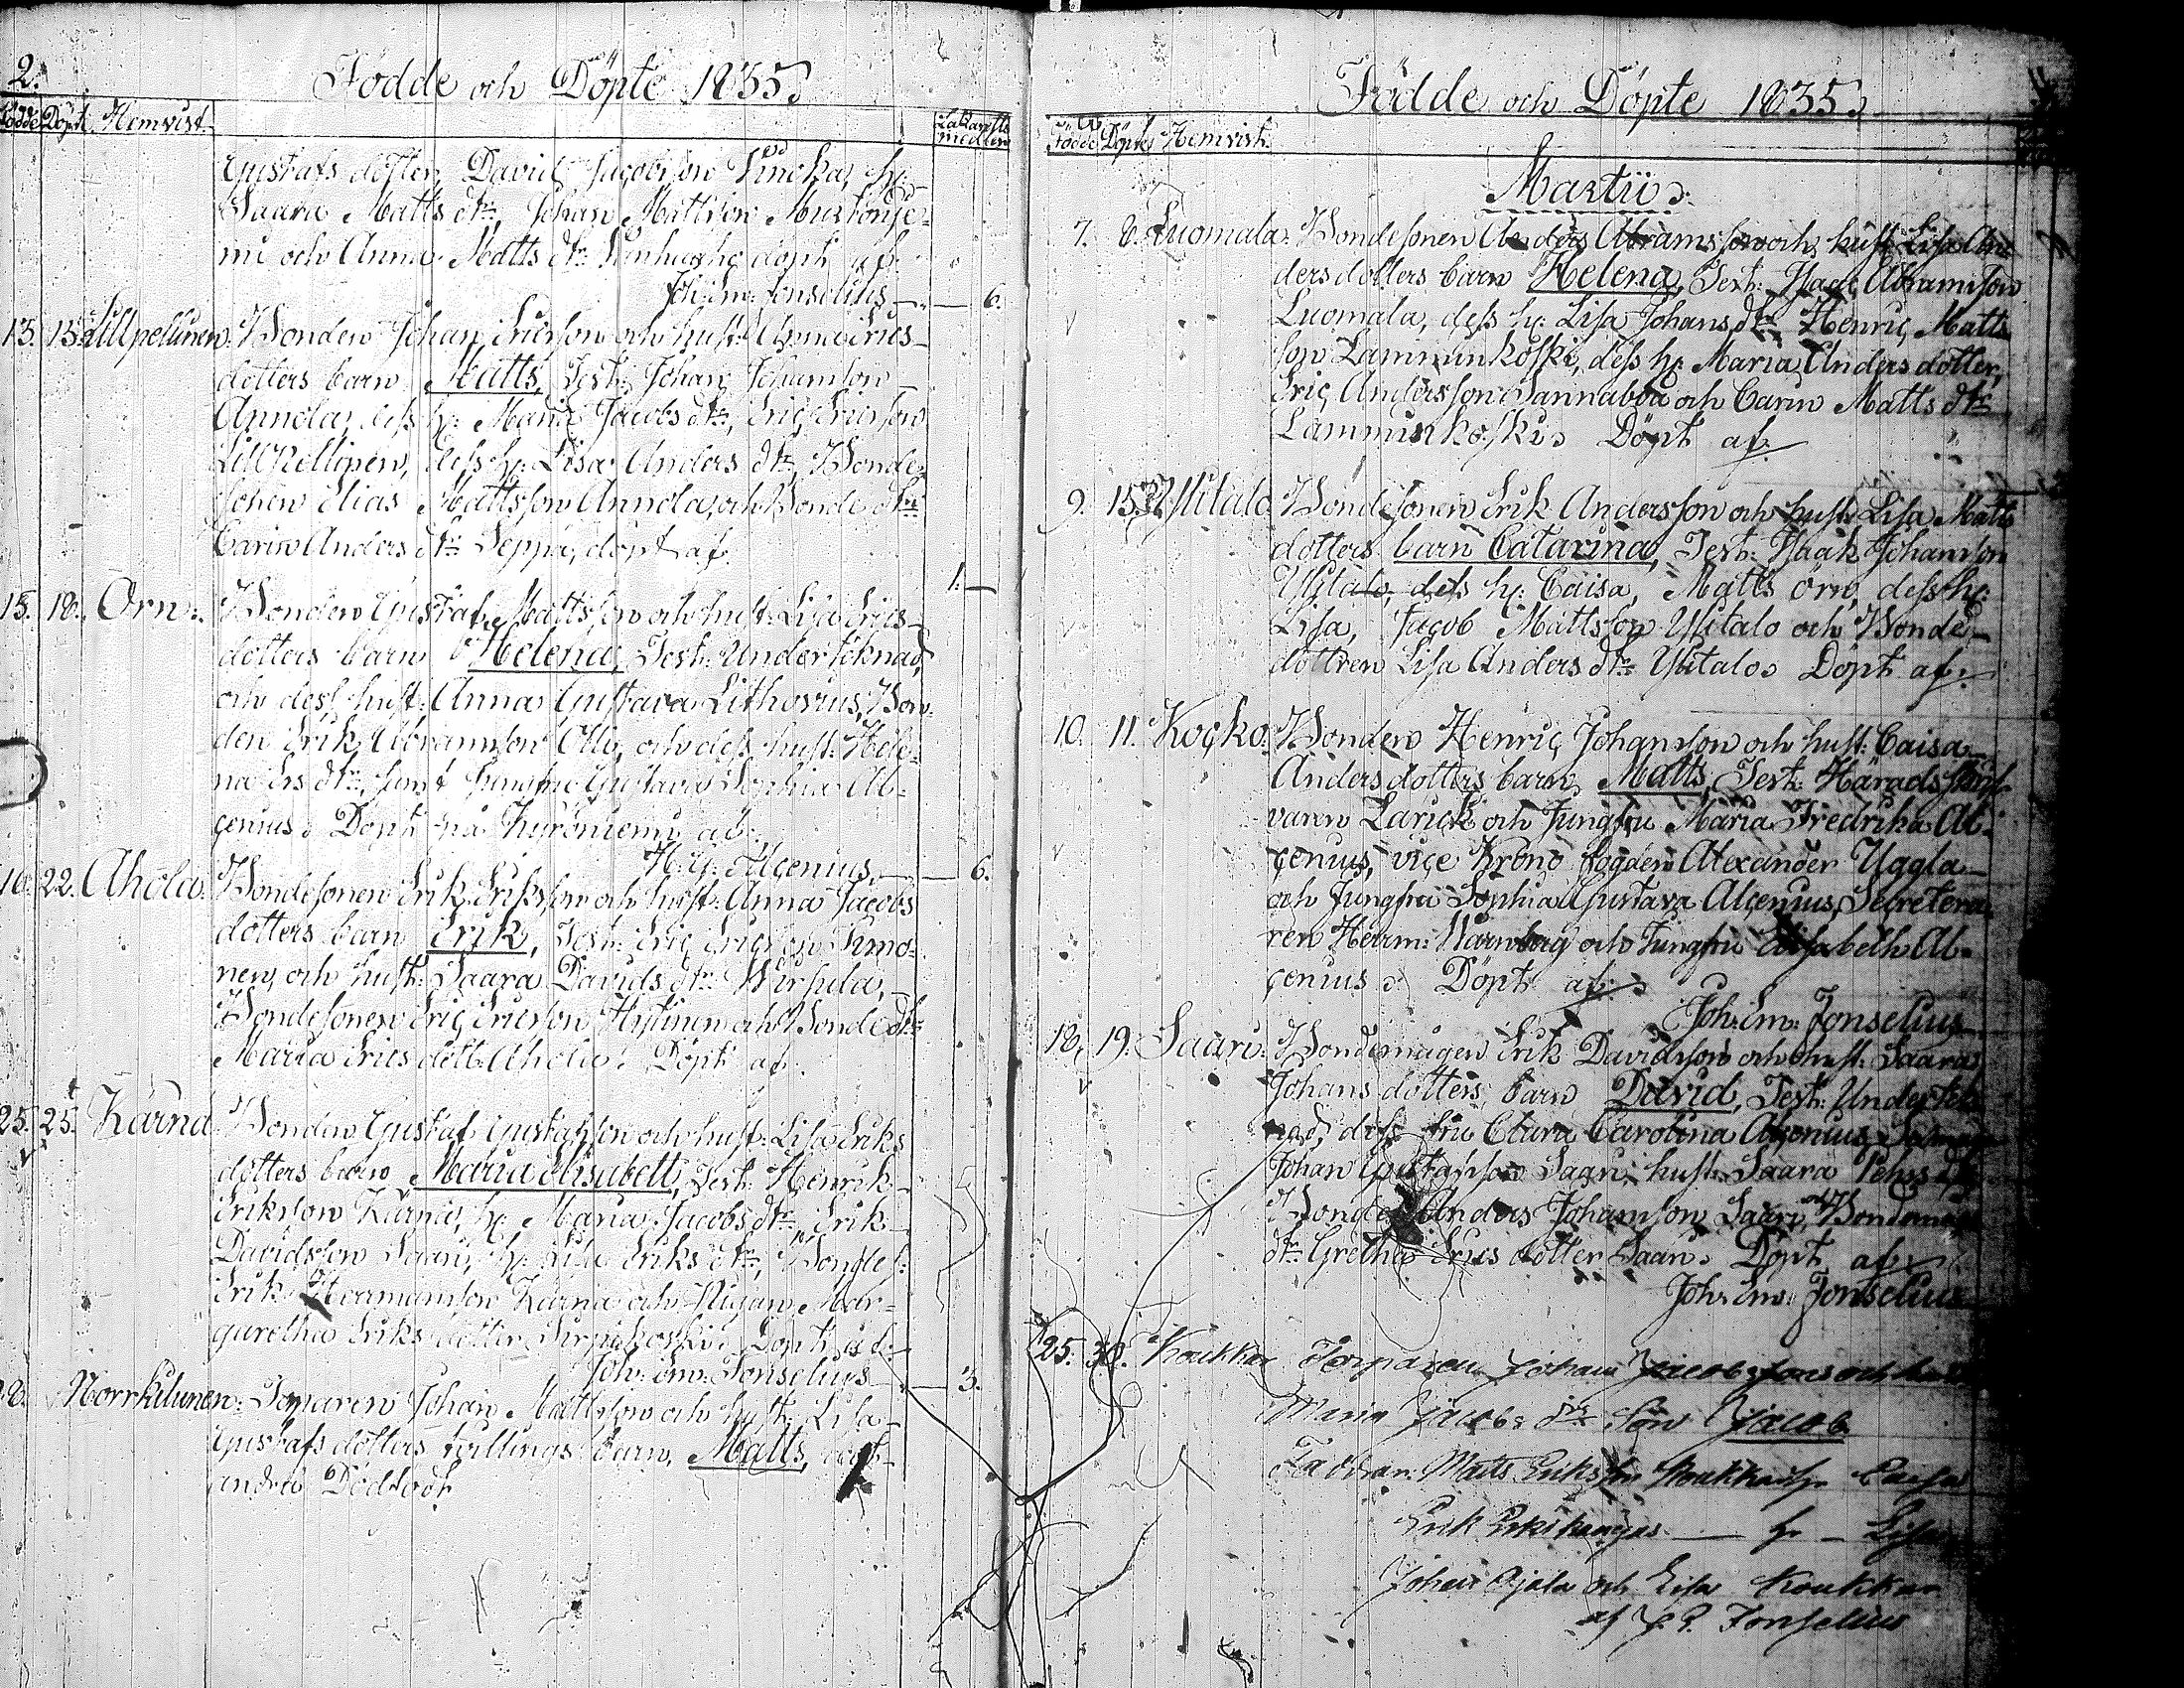 2.
Födde och Döpte 1835.
Födde Döpte Hemvist. Lazaretts medlen
Gustafs dotter, David Jacobsson h:
Saara Matts dtr, Johan Mattsson Mustonie-
mi och Anna Matts dtr döpt af
Joh: Em: Jonselius — 6.
13. 15. Lillpellinen: Bonden Johan Ericsson och hust: Anna Erics
dotters barn Matts, Test: Johan Johansson
Annola, dess h: Maria Jacobs dtr, Eric Ericsson
Lillpellinen, dess h: Lisa Anders dtr, Bonde-
sonen Elias Mattsson Annola, och Bonde dtr
Carin Anders dtr Seppä, döpt af
1. —
15. 18. Örn: Bonden Gustaf Mattsson och hust: Lisa Erics
dotters barn Helena, Test: Undertecknad,
och dess hust: Anna Gustava Lithovius, Bon-
den Erik Abramsson Olli, och dess hust: Hele-
na Ers dtr, samt Jungfru Gustava Sophia Al-
cenius. Döpt på Kyröniemi af
H. G. Alcenius. — 6.
16. 22. Ahola: Bondesonen Erik Eriksson och hust: Anna Jacobs
dotters barn Erik, Test: Eric Ericsson Timo-
nen, och hust: Saara Davids dtr Wirsula,
Bondesonen Eric Ericsson och Bonde dtr
Maria Erics dott: Ahola. Döpt af.
25. 25. Kärnä Bonden Gustaf Gustafsson och hust: Lisa Eriks
dotters barn Maria Elisabett, Test: Henrik
Eriksson Kärnä, h: Maria Jacobs dtr, Erik
Davidsson Saari, h: Lisa Eriks dtr, Bondes:
Erik Hermansson Kärnä och Pigan Mar-
garetha Eriks dotter Döpt af
Joh: Em: Jonselius — 3.
8. Norrkilunen: Johan Mattsson och hust: Lisa
Gustafs dotters tvillings barn, Matts, det
andra Dödfödt
Födde och Döpte 1835.
Födde Döpte Hemvist.
Martii.
7. 8. Luomala. Bondesonen Anders Abramsson och hust: Lisa An-
ders dotters barn Helena, Test: Isac Abramsson
Luomala, dess h: Lisa Johans dtr Henric Matts
son Lamminkoski, dess h: Maria Anders dotter,
Eric Andersson Sannabba och Carin Matts dtr
Lamminkoski. Döpt af.
9. 15. Ylitalo Bondesonen Erik Andersson och hust: Lisa Matts
dotters barn Catarina, Test: Isaak Johansson
Ylitalo, dess h: Caisa, Matts Örn, dess h:
Lisa, Jacob Mattsson Ylitalo och Bonde-
dottren Lisa Anders dtr Ylitalo. Döpt af.
10. 11. Kocko: Bonden Henric Johansson och hust: Caisa
Anders dotters barn, Matts, Test: Härads skrif-
varen Larick och Jungfru Maria Fredrika Al-
cenius, vice Krono fogden Alexander Uggla
och Jungfru Sophia Gustava Alcenius, Secretera-
ren Herm: Warnberg och Jungfru Elisabeth Al-
cenius. Döpt af.
Joh: Em: Jonselius
18. 19. Saari: Bondemågen Erik Davidsson och hust: Saara
Johans dotters barn David, Test: Underteck-
nad, dess fru Clara Carolina Alcenius,
Johan Gustafsson Saari, hust: Saara Pehrs dtr
Bonden Anders Johansson Saari,
dtr Gretha Erics dotter Saari. Döpt af
Joh: Em: Jonselius
25. 30. Koukkar Torparen Johan Jacobssons och hust
Maria Jacobs dtr Son Jacob
Faddrar: Matts Eriksson Koukkar h: Caisa
Erik Erkikangas — h: — Lisa
Johan Ojala och Lisa Koukkar
af J. E. Jonselius